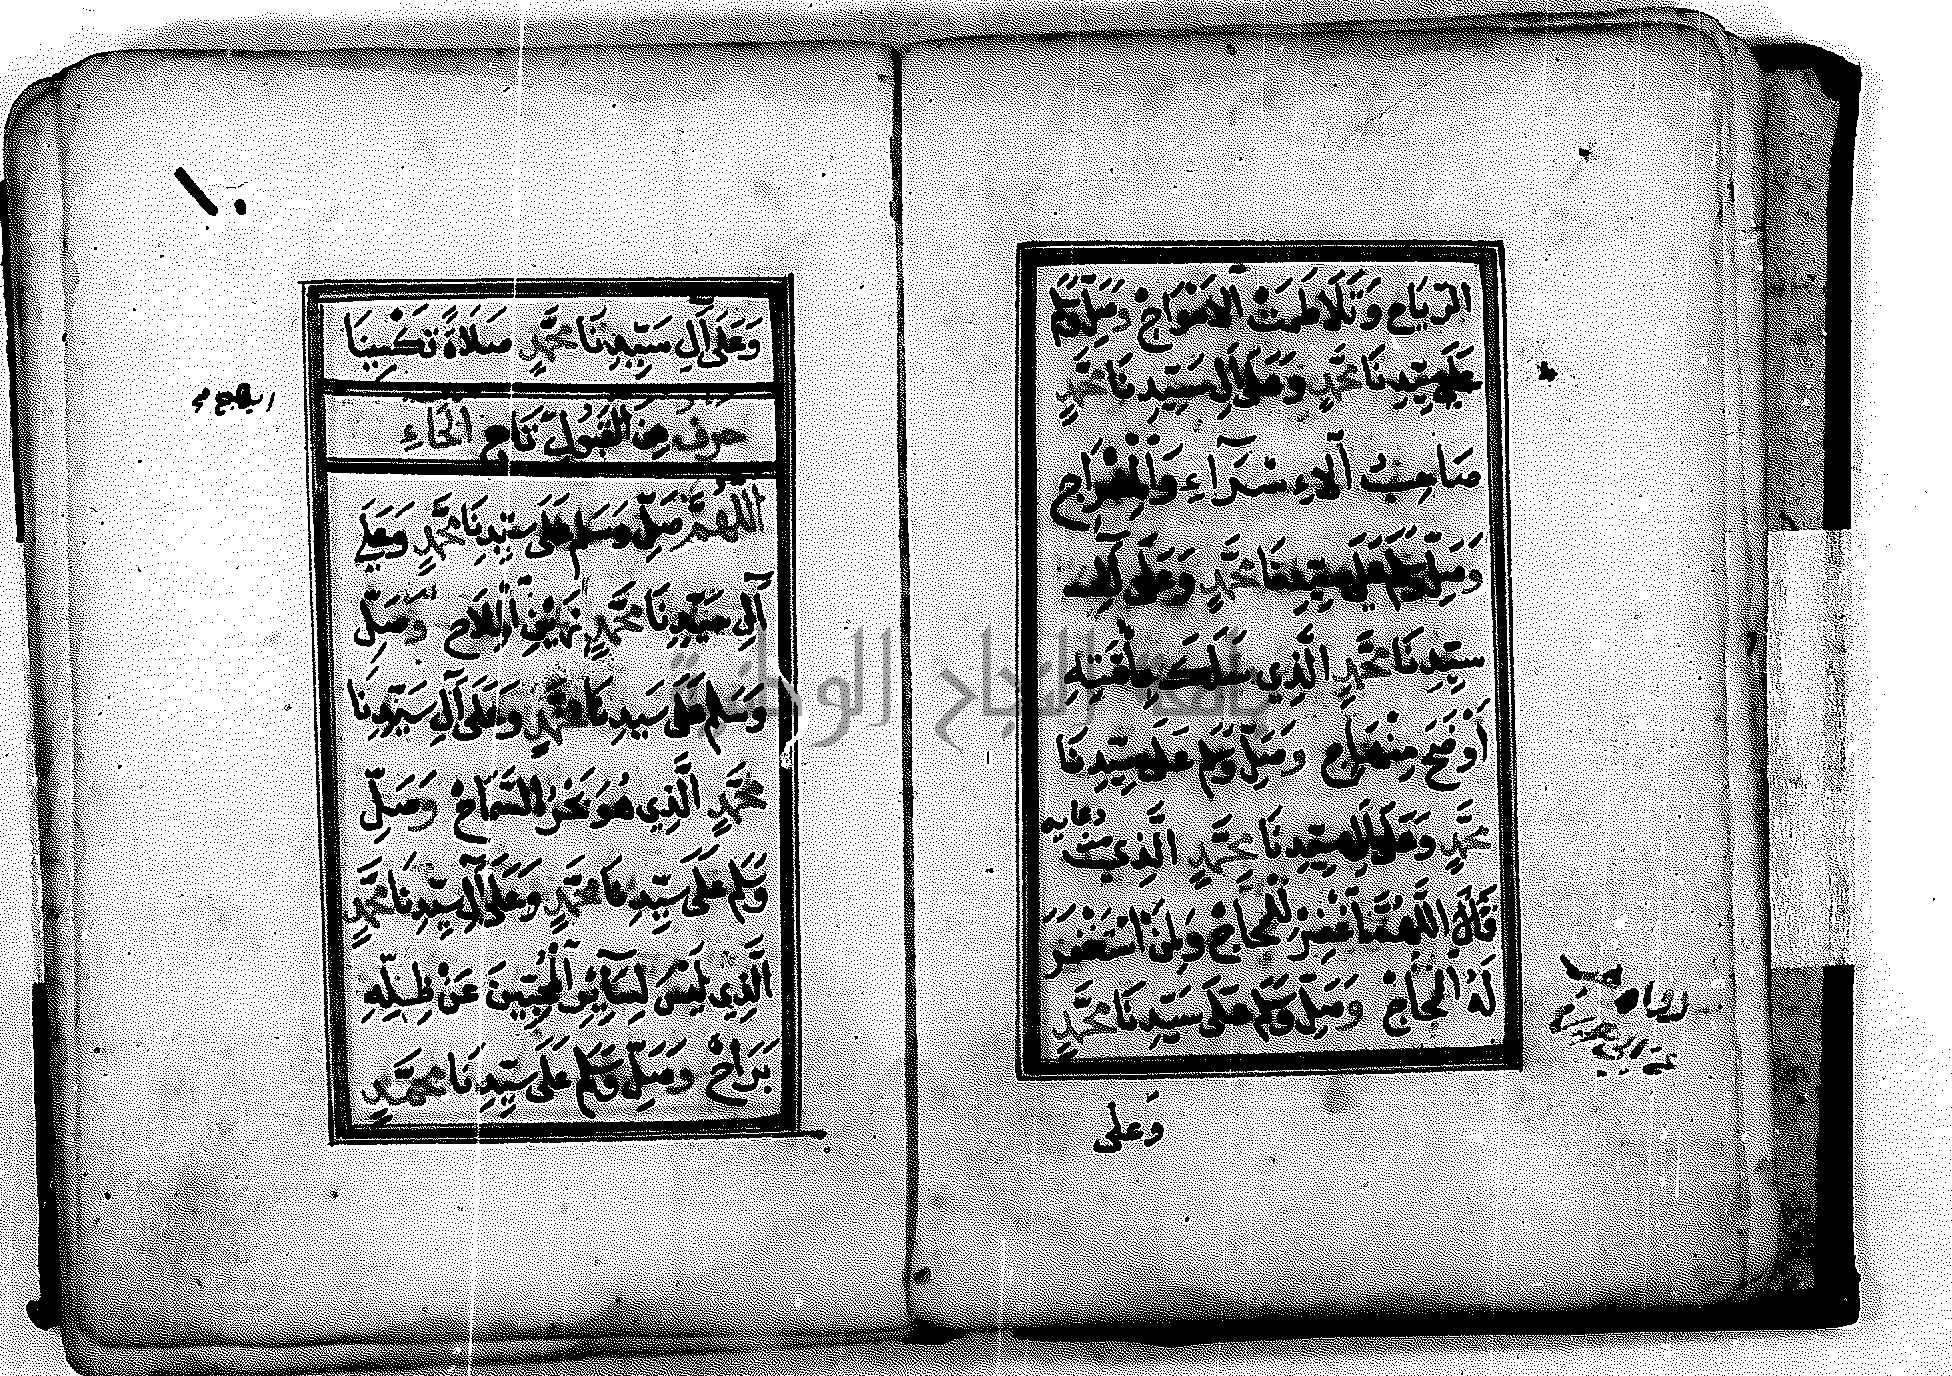 الرِّيَاحِ وَتَلَاطَمَتْ الْأَمْوَاجْ وَصَلِّ وَسَلِّمْ
عَلَى سَيِّدِنَا مُحَمَّدٍ وَعَلَى آلِ سَيِّدِنَا مُحَمَّدٍ
صَاحِبُ الْاِسْرَآءِ وَالْمِعْرَاجِ
وَصَلِّ وَسَلِّمْ عَلَى سَيِّدِنَا مُحَمَّدٍ وَعَلَى آلِ
سَيِّدِنَا مُحَمَّدٍ الَّذِي سَلَكَ بِأُمَّتِهِ
أَوْضَحَ مِنْهَاجْ وَصَلِّ وَسَلِّمْ عَلَى سَيِّدِنَا
مُحَمَّدٍ وَعَلَى آلِ سَيِّدِنَا مُحَمَّدٍ الَّذِي مِنْ دعايه
قَالَ اللَّهُمَّ اغْفِرْ لِلْحُجَّاجْ وَلِمَنْ اسْتَغْفَرَ
لَهُ الْحُجَّاجْ وَصَلِّ وَسَلِّمْ عَلَى سَيِّدِنَا مُحَمَّدٍ
رواه
عن ابي هريرة
وَعلى
١٠
وَعَلَى آلِ سَيِّدِنَا مُحَمَّدٍ صَلَاةً تَكْسِينَا
مِنَ الْقَبُولِ تَاجْ حرف الْحَاءِ
اللَّهُمَّ صَلِّ وَسَلِّمْ عَلَى سَيِّدِنَا مُحَمَّدٍ وَعَلَى
آلِ سَيِّدِنَا مُحَمَّدٍ زَيْنِ الْمِلَاحِ وَصَلِّ
وَسَلِّمْ عَلَى سَيِّدِنَا مُحَمَّدٍ وَعَلَى آلِ سَيِّدِنَا
مُحَمَّدٍ الَّذِي هُوَ بَحْرُ السَّمَاحْ وَصَلِّ
وَسَلِّمْ عَلَى سَيِّدِنَا مُحَمَّدٍ وَعَلَى آلِ سَيِّدِنَا مُحَمَّدٍ
الَّذِي لَيْسَ لِسَآئِرِ الْمُحِبِّينَ عَنْ ظِلِّهِ
بَرَاحْ وَصَلِّ وَسَلِّمْ عَلَى سَيِّدِنَا مُحَمَّدٍ
جامعة النجاح الوطنية